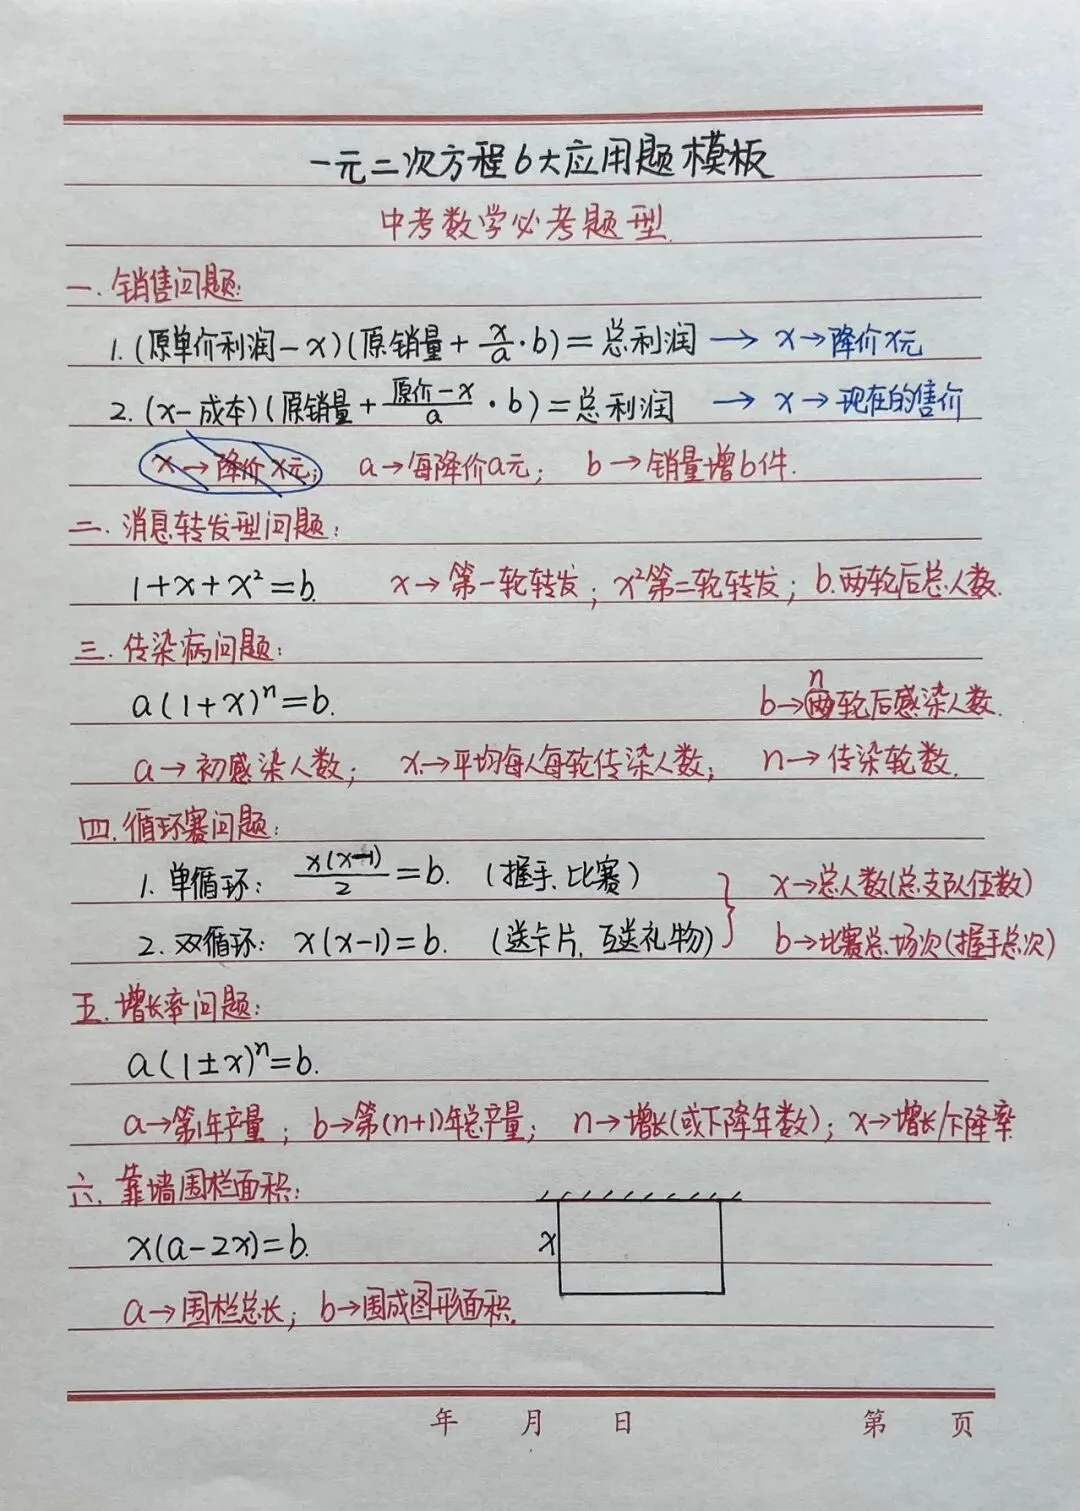 一元二次方程6大应用题模板
中考数学必考题型
一.销售问题:
1.(原单价利润-x)(原销量+x/a·b)=总利润 → x→降价x元
2.(x-成本)(原销量+原价-x/a·b)=总利润 → x→现在的售价
x→降价x元; a→每降价a元; b→销量增b件.
二.消息转发型问题:
1+x+x²=b. x→第一轮转发; x²第二轮转发; b.两轮后总人数.
三.传染病问题:
n
a(1+x)ⁿ=b. b→两轮后感染人数.
a→初感染人数; x→平均每人每轮传染人数; n→传染轮数.
四.循环赛问题:
1.单循环: x(x-1)/2=b. (握手、比赛) x→总人数(总支队伍数)
2.双循环: x(x-1)=b. (送卡片,互送礼物) b→比赛总场次(握手总次)
五.增长率问题:
a(1±x)ⁿ=b.
a→第1年产量; b→第(n+1)年总产量; n→增长(或下降年数); x→增长/下降率
六.靠墙围栏面积:
x(a-2x)=b. x
a→围栏总长; b→围成图形面积.
年 月 日 第 页